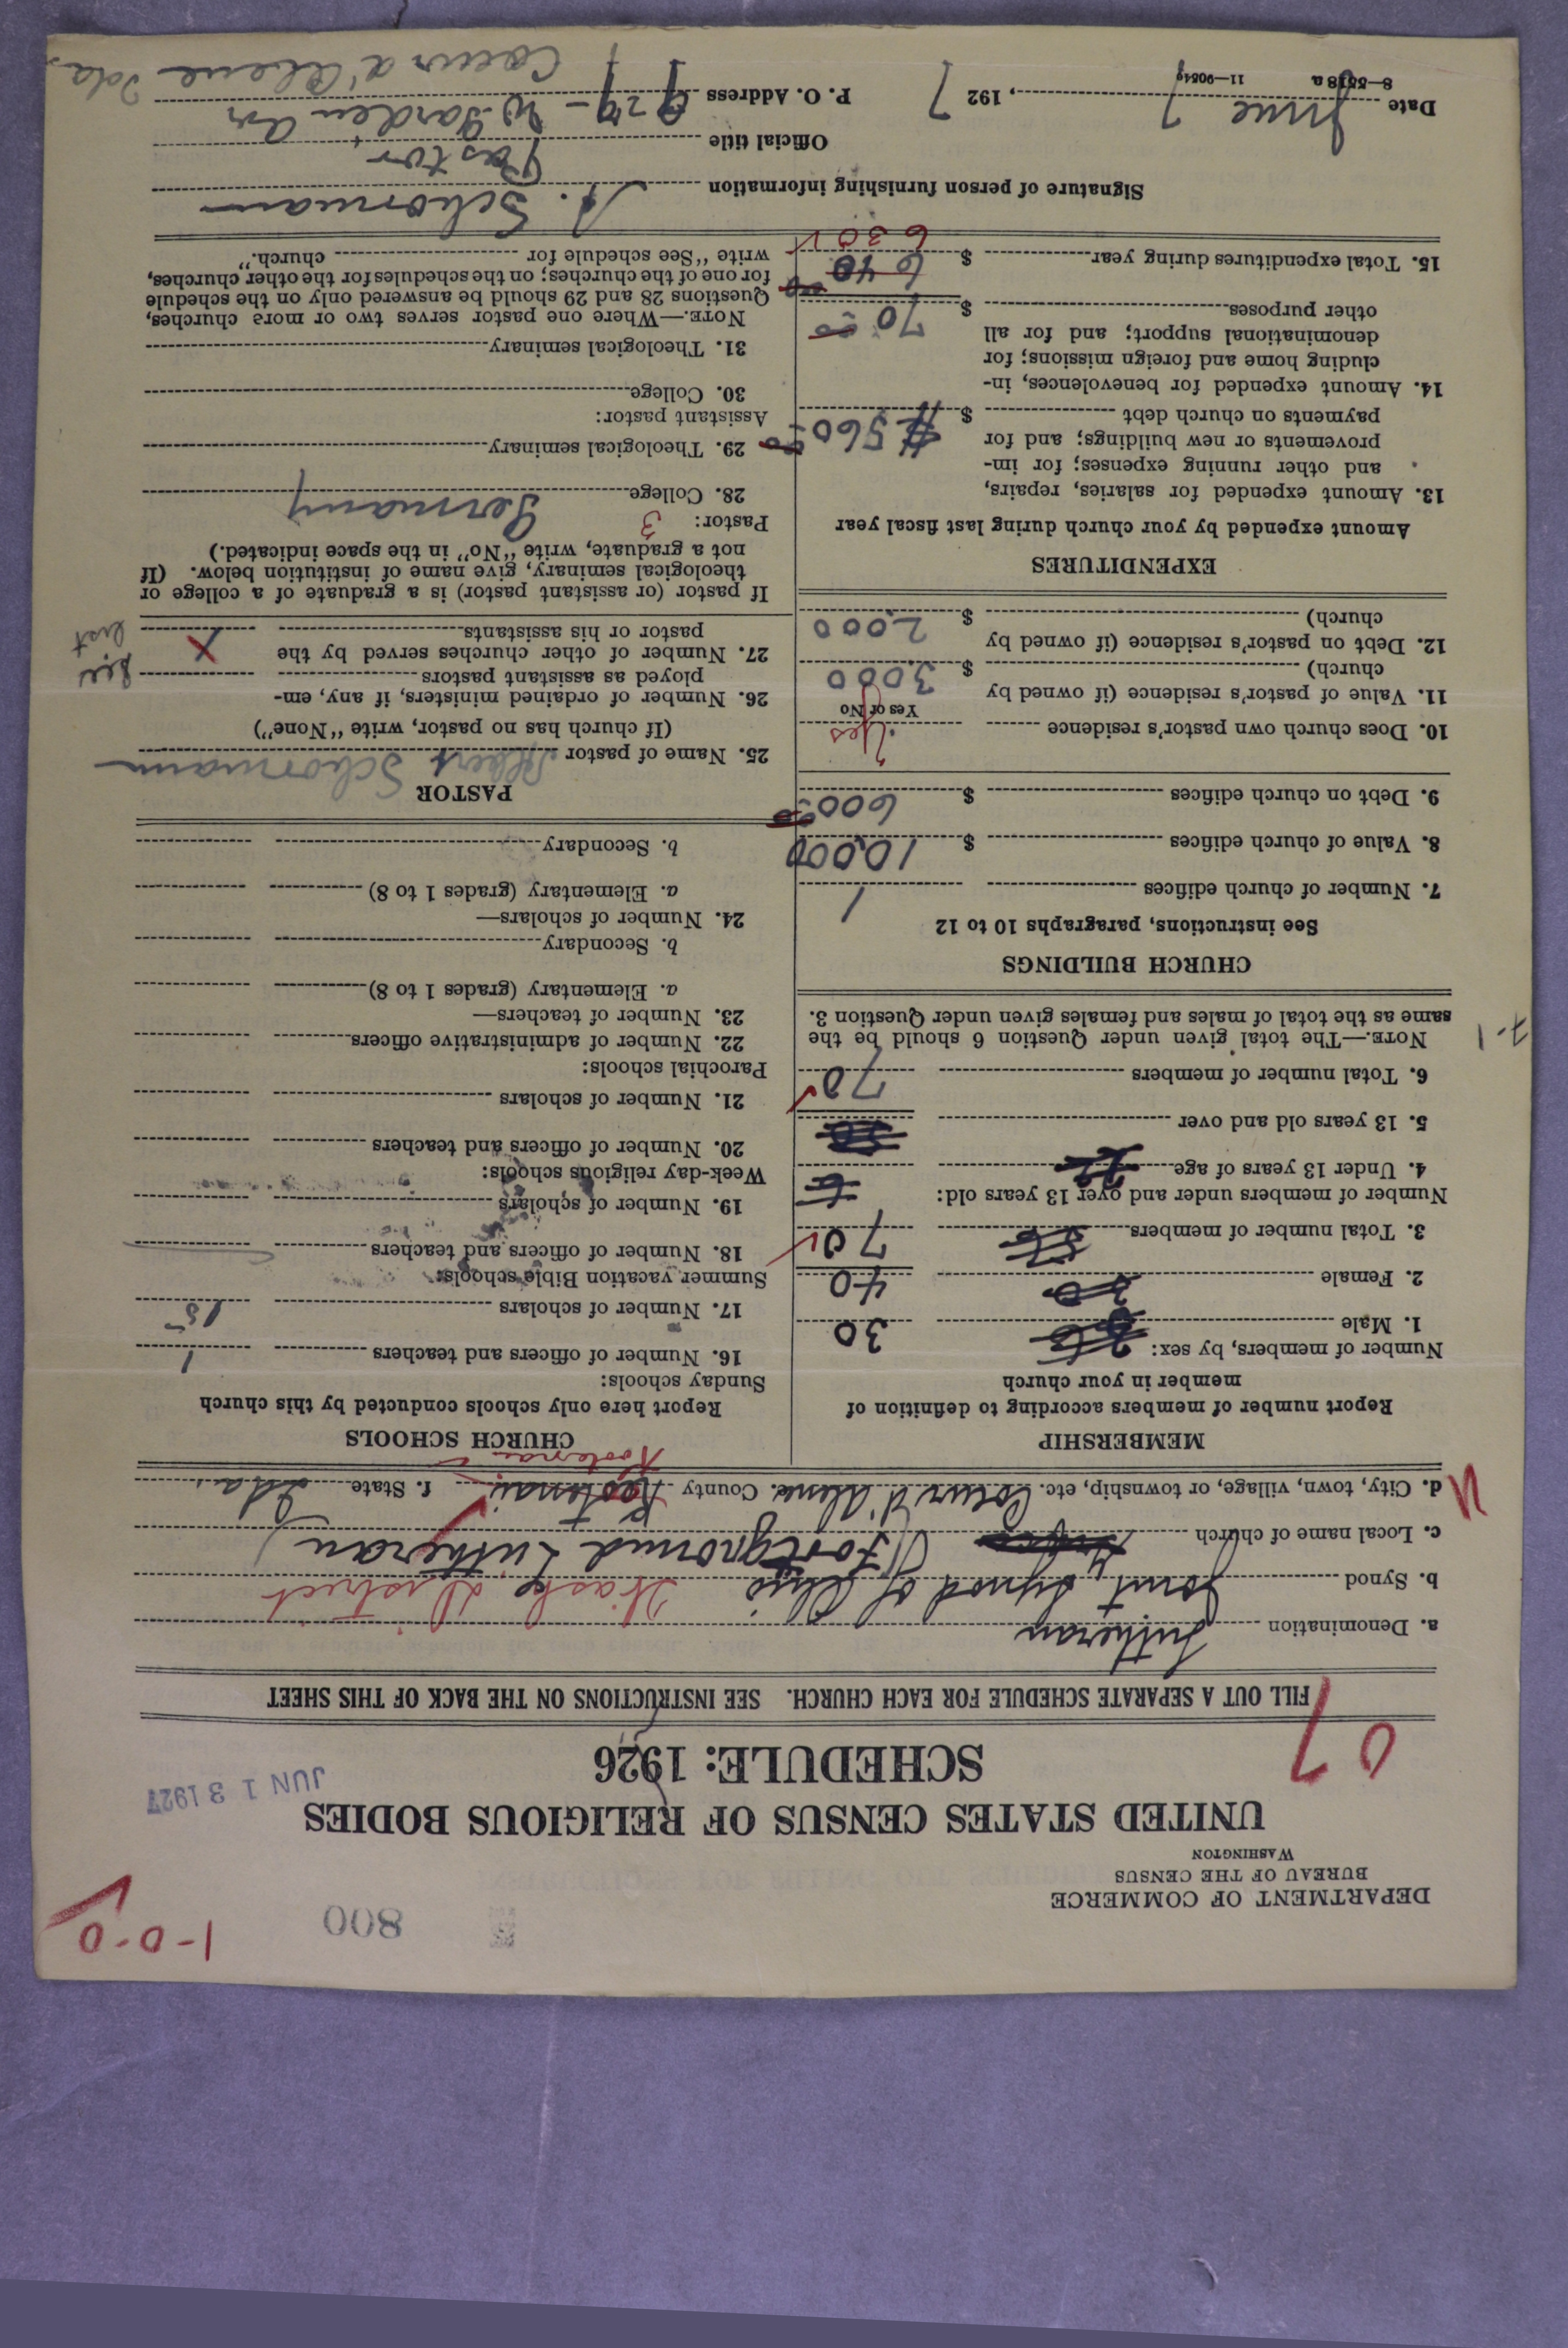 1-0-0
800
DEPARTMENT OF COMMERCE
BUREAU OF THE CENSUS
WASHINGTON
UNITED STATES CENSUS OF RELIGIOUS BODIES
SCHEDULE: 1926
JUN 13 1927
07
FILL OUT A SEPARATE SCHEDULE FOR EACH CHURCH. SEE INSTRUCTIONS ON THE BACK OF THIS SHEET
a. Denomination Lutheran
b. Synod Joint Synod of Ohio Wash District
c. Local name of church Lutheran
d. City, town, village, or township, etc. Coeur d'Alene e. County Kootenai f. State Ida.
Kootenai
MEMBERSHIP
Report number of members according to definition of
member in your church
Number of members, by sex:
1. Male 30
2. Female 40
3. Total number of members 70
Number of members under and over 13 years old:
4. Under 13 years of age
5. 13 years old and over
6. Total number of members 70
NOTE.—The total given under Question 6 should be the
same as the total of males and females given under Question 3.
7-1
CHURCH BUILDINGS
See instructions, paragraphs 10 to 12
7. Number of church edifices 1
8. Value of church edifices $ 10,000
9. Debt on church edifices $ 600.00
10. Does church own pastor's residence Yes
Yes or No
11. Value of pastor's residence (if owned by
church) $ 3000
12. Debt on pastor's residence (if owned by
church) $ 2,000
EXPENDITURES
Amount expended by your church during last fiscal year
13. Amount expended for salaries, repairs,
and other running expenses; for im-
provements or new buildings; and for
payments on church debt $ 560.00
14. Amount expended for benevolences, in-
cluding home and foreign missions; for
denominational support; and for all
other purposes $ 70.00
15. Total expenditures during year $ 640.00
630
CHURCH SCHOOLS
Report here only schools conducted by this church
Sunday schools:
16. Number of officers and teachers 1
17. Number of scholars 15
Summer vacation Bible schools:
18. Number of officers and teachers
19. Number of scholars
Week-day religious schools:
20. Number of officers and teachers
21. Number of scholars
Parochial schools:
22. Number of administrative officers
23. Number of teachers—
a. Elementary (grades 1 to 8)
b. Secondary
24. Number of scholars—
a. Elementary (grades 1 to 8)
b. Secondary
PASTOR
25. Name of pastor Albert Schormann
(If church has no pastor, write "None")
26. Number of ordained ministers, if any, em-
ployed as assistant pastors
27. Number of other churches served by the
pastor or his assistants X
See list
If pastor (or assistant pastor) is a graduate of a college or
theological seminary, give name of institution below. (If
not a graduate, write "No" in the space indicated.)
Pastor: 3
28. College Germany
29. Theological seminary
Assistant pastor:
30. College
31. Theological seminary
NOTE.—Where one pastor serves two or more churches,
Questions 28 and 29 should be answered only on the schedule
for one of the churches; on the schedules for the other churches,
write "See schedule for church."
Signature of person furnishing information A. Schormann
Official title Pastor
Date June 7, 1927 P. O. Address 929 - W. Garden Av
Coeur d'Alene Ida.
8—5518a 11—9054